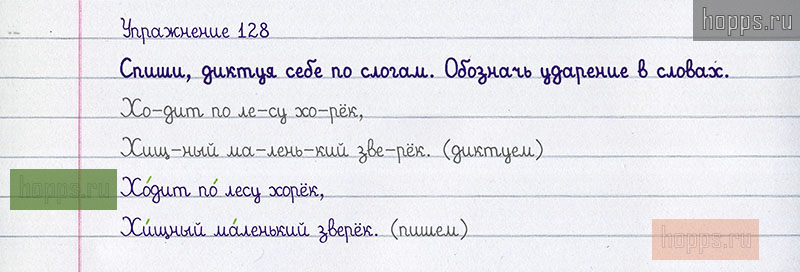 hopps.ru
Упражнение 128
Спиши, диктуя себе по слогам. Обозначь ударение в словах.
Хо-дит по ле-су хо-рёк,
Хищ-ный ма-лень-кий зве-рёк. (диктуем)
hopps.ru
Хо́дит по́ лесу хорёк,
Хи́щный ма́ленький зверёк. (пишем)
hopps.ru